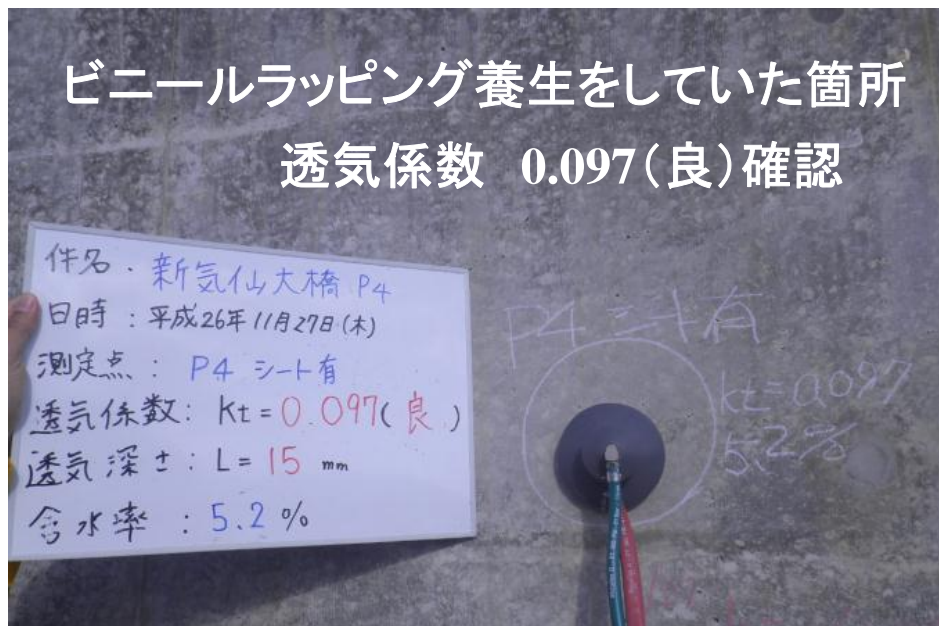 ビニールラッピング養生をしていた箇所
透気係数　0.097（良）確認
件名． 新気仙大橋 P4
日時：平成26年11月27日(木)
測定点： P4 シート有
透気係数： Kt＝0.097(良)
透気深さ：L＝15 mm
含水率 ：5.2 %
P4 シート有
kt=0.097
5.2%